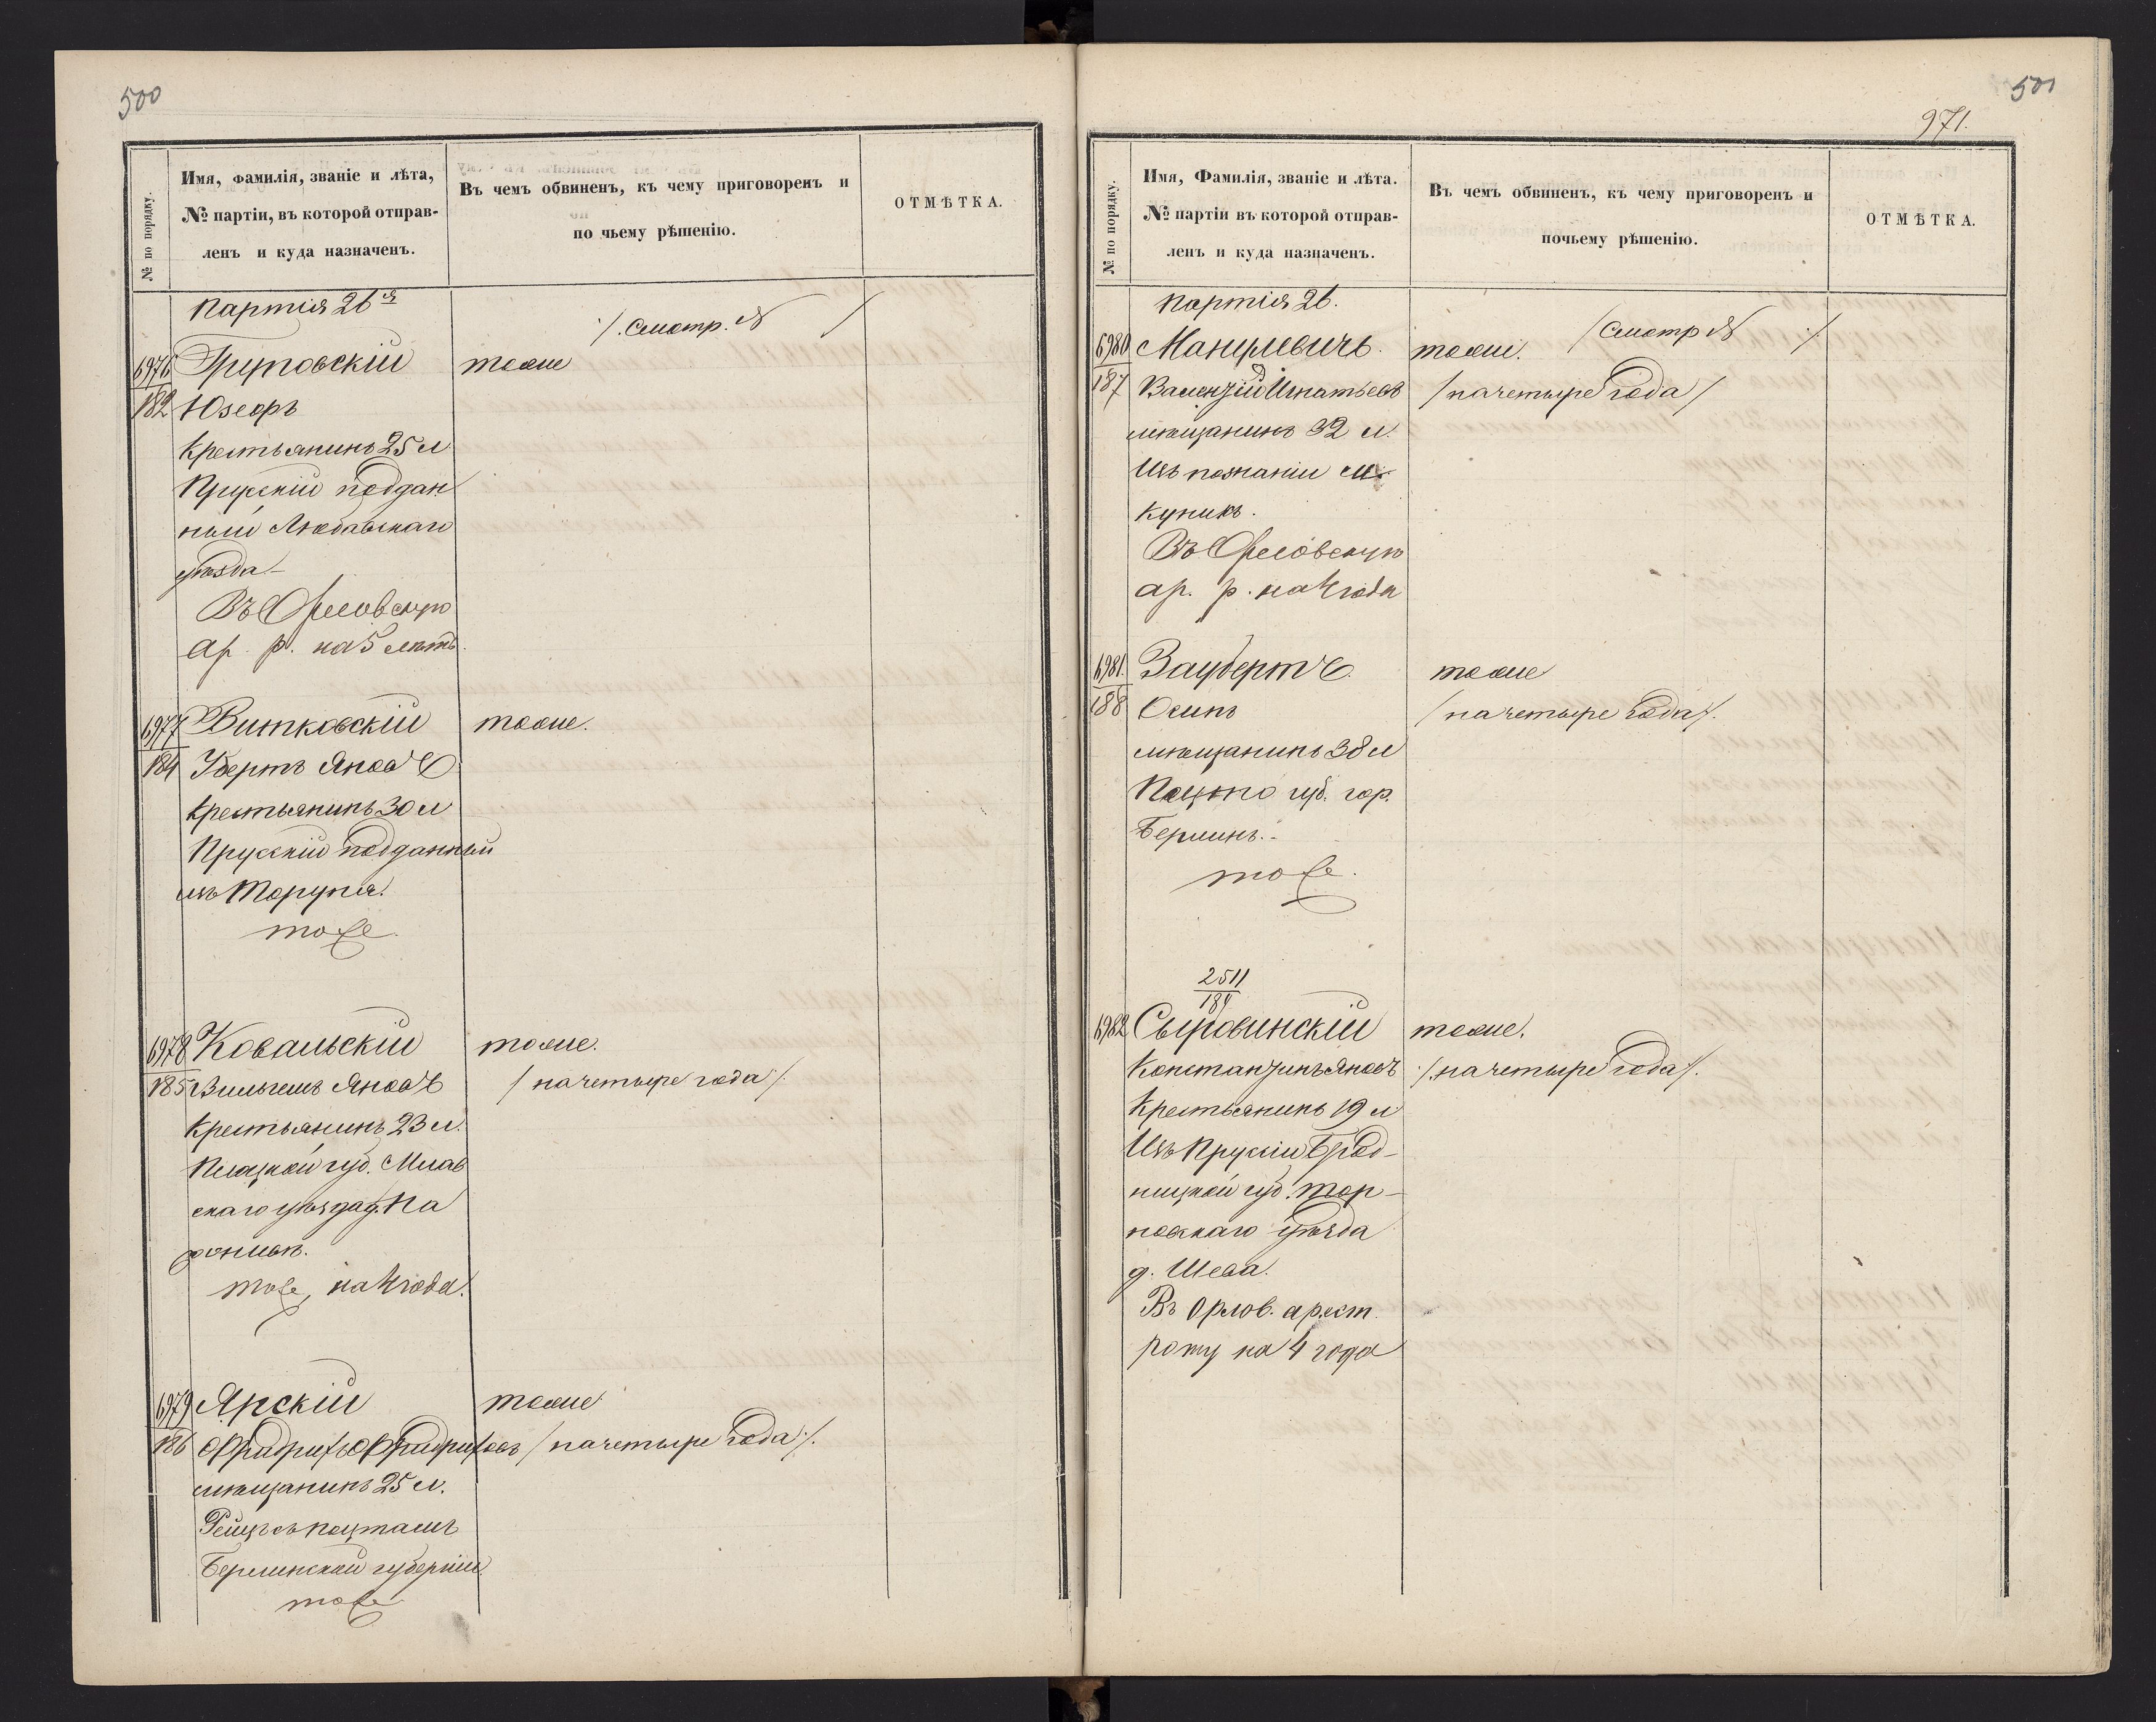 500
№ по порядку.
Имя, фамилія, званіе и лѣта,
№ партіи, въ которой отправ-
ленъ и куда назначенъ.
Въ чемъ обвиненъ, къ чему приговоренъ и
по чьему рѣшенію.
ОТМѢТКА.
Партія 26я
/. Смотр. № /
6976
182
Грутовскій
тоже
Юзефъ
Крестьянинъ 25 л
Прусскій поддан
ный
уѣзда
Въ Орловскую
ар. р. на 5 лѣтъ.
6977
184
Витковскій
тоже.
Убертъ
Крестьянинъ 30 л
Прусскій подданный
изъ Торуня.
тоже.
6978
185
Ковальскій
тоже.
Вильгемъ
/ на четыре года /.
Крестьянинъ 23 л.
Плоцкой губ. Млав
скаго уѣзда д.
тоже, на 4 года.
6979
186
Ярскій
тоже
Фридрихъ Фридриховъ
/ на четыре года /.
мѣщанинъ 25 л.
Берлинской губерніи
тоже
501
971.
№ по порядку.
Имя, Фамилія, званіе и лѣта.
№ партіи въ которой отправ-
ленъ и куда назначенъ.
Въ чемъ обвиненъ, къ чему приговоренъ и
почьему рѣшенію.
ОТМѢТКА.
Партія 26.
/ Смотр № /
6980
187
Манулевичъ.
тоже.
Игнатьевъ
/ на четыре года /
мѣщанинъ 32 л.
Изъ познаніи м.
Куникъ.
Въ Орловскую
ар. р. на 4 года
6981.
188
Заубертъ
тоже
Осипъ
/ на четыре года /.
мѣщанинъ 38 л
губ. гор.
Берлинъ.
тоже.
2511
189
6982
Сыровинскій
тоже.
Константинъ Яновъ
/. на четыре года /.
Крестьянинъ 19 л
Изъ Прусіи Брод-
ницкой губ. Тор-
новскаго уѣзда
д.
Въ Орлов. арест.
роту на 4 года